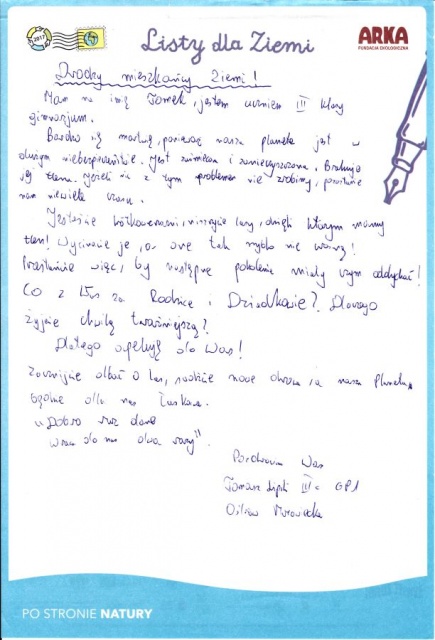 2017
Listy dla Ziemi
ARKA
FUNDACJA EKOLOGICZNA
Drodzy mieszkańcy Ziemi!
Mam na imię Tomek, jestem uczniem III klasy
gimnazjum.
Bardzo się martwię, ponieważ nasza planeta jest w
dużym niebezpieczeństwie. Jest zaśmiecona i zanieczyszczona. Brakuje
jej tlenu. Jeżeli się z tym problemem nie zrobimy, pozostanie
nam niewiele czasu.
Jesteście krótkowzroczni, niszczycie lasy, dzięki którym mamy
tlen! Wycinacie je, a one tak szybko nie wrosną!
Przestańcie więc, by następne pokolenia miały czym oddychać!
Co z Was za Rodzice i Dziadkowie? Dlaczego
żyjecie chwilą teraźniejszą?
Dlatego apeluję do Was!
Zacznijcie dbać o las, sadźcie nowe drzewa, a nasza Planeta
będzie dla nas łaskawa.
"Dobro raz dane
wraca do nas dwa razy".
Pozdrawiam Was
Tomasz III c GP1